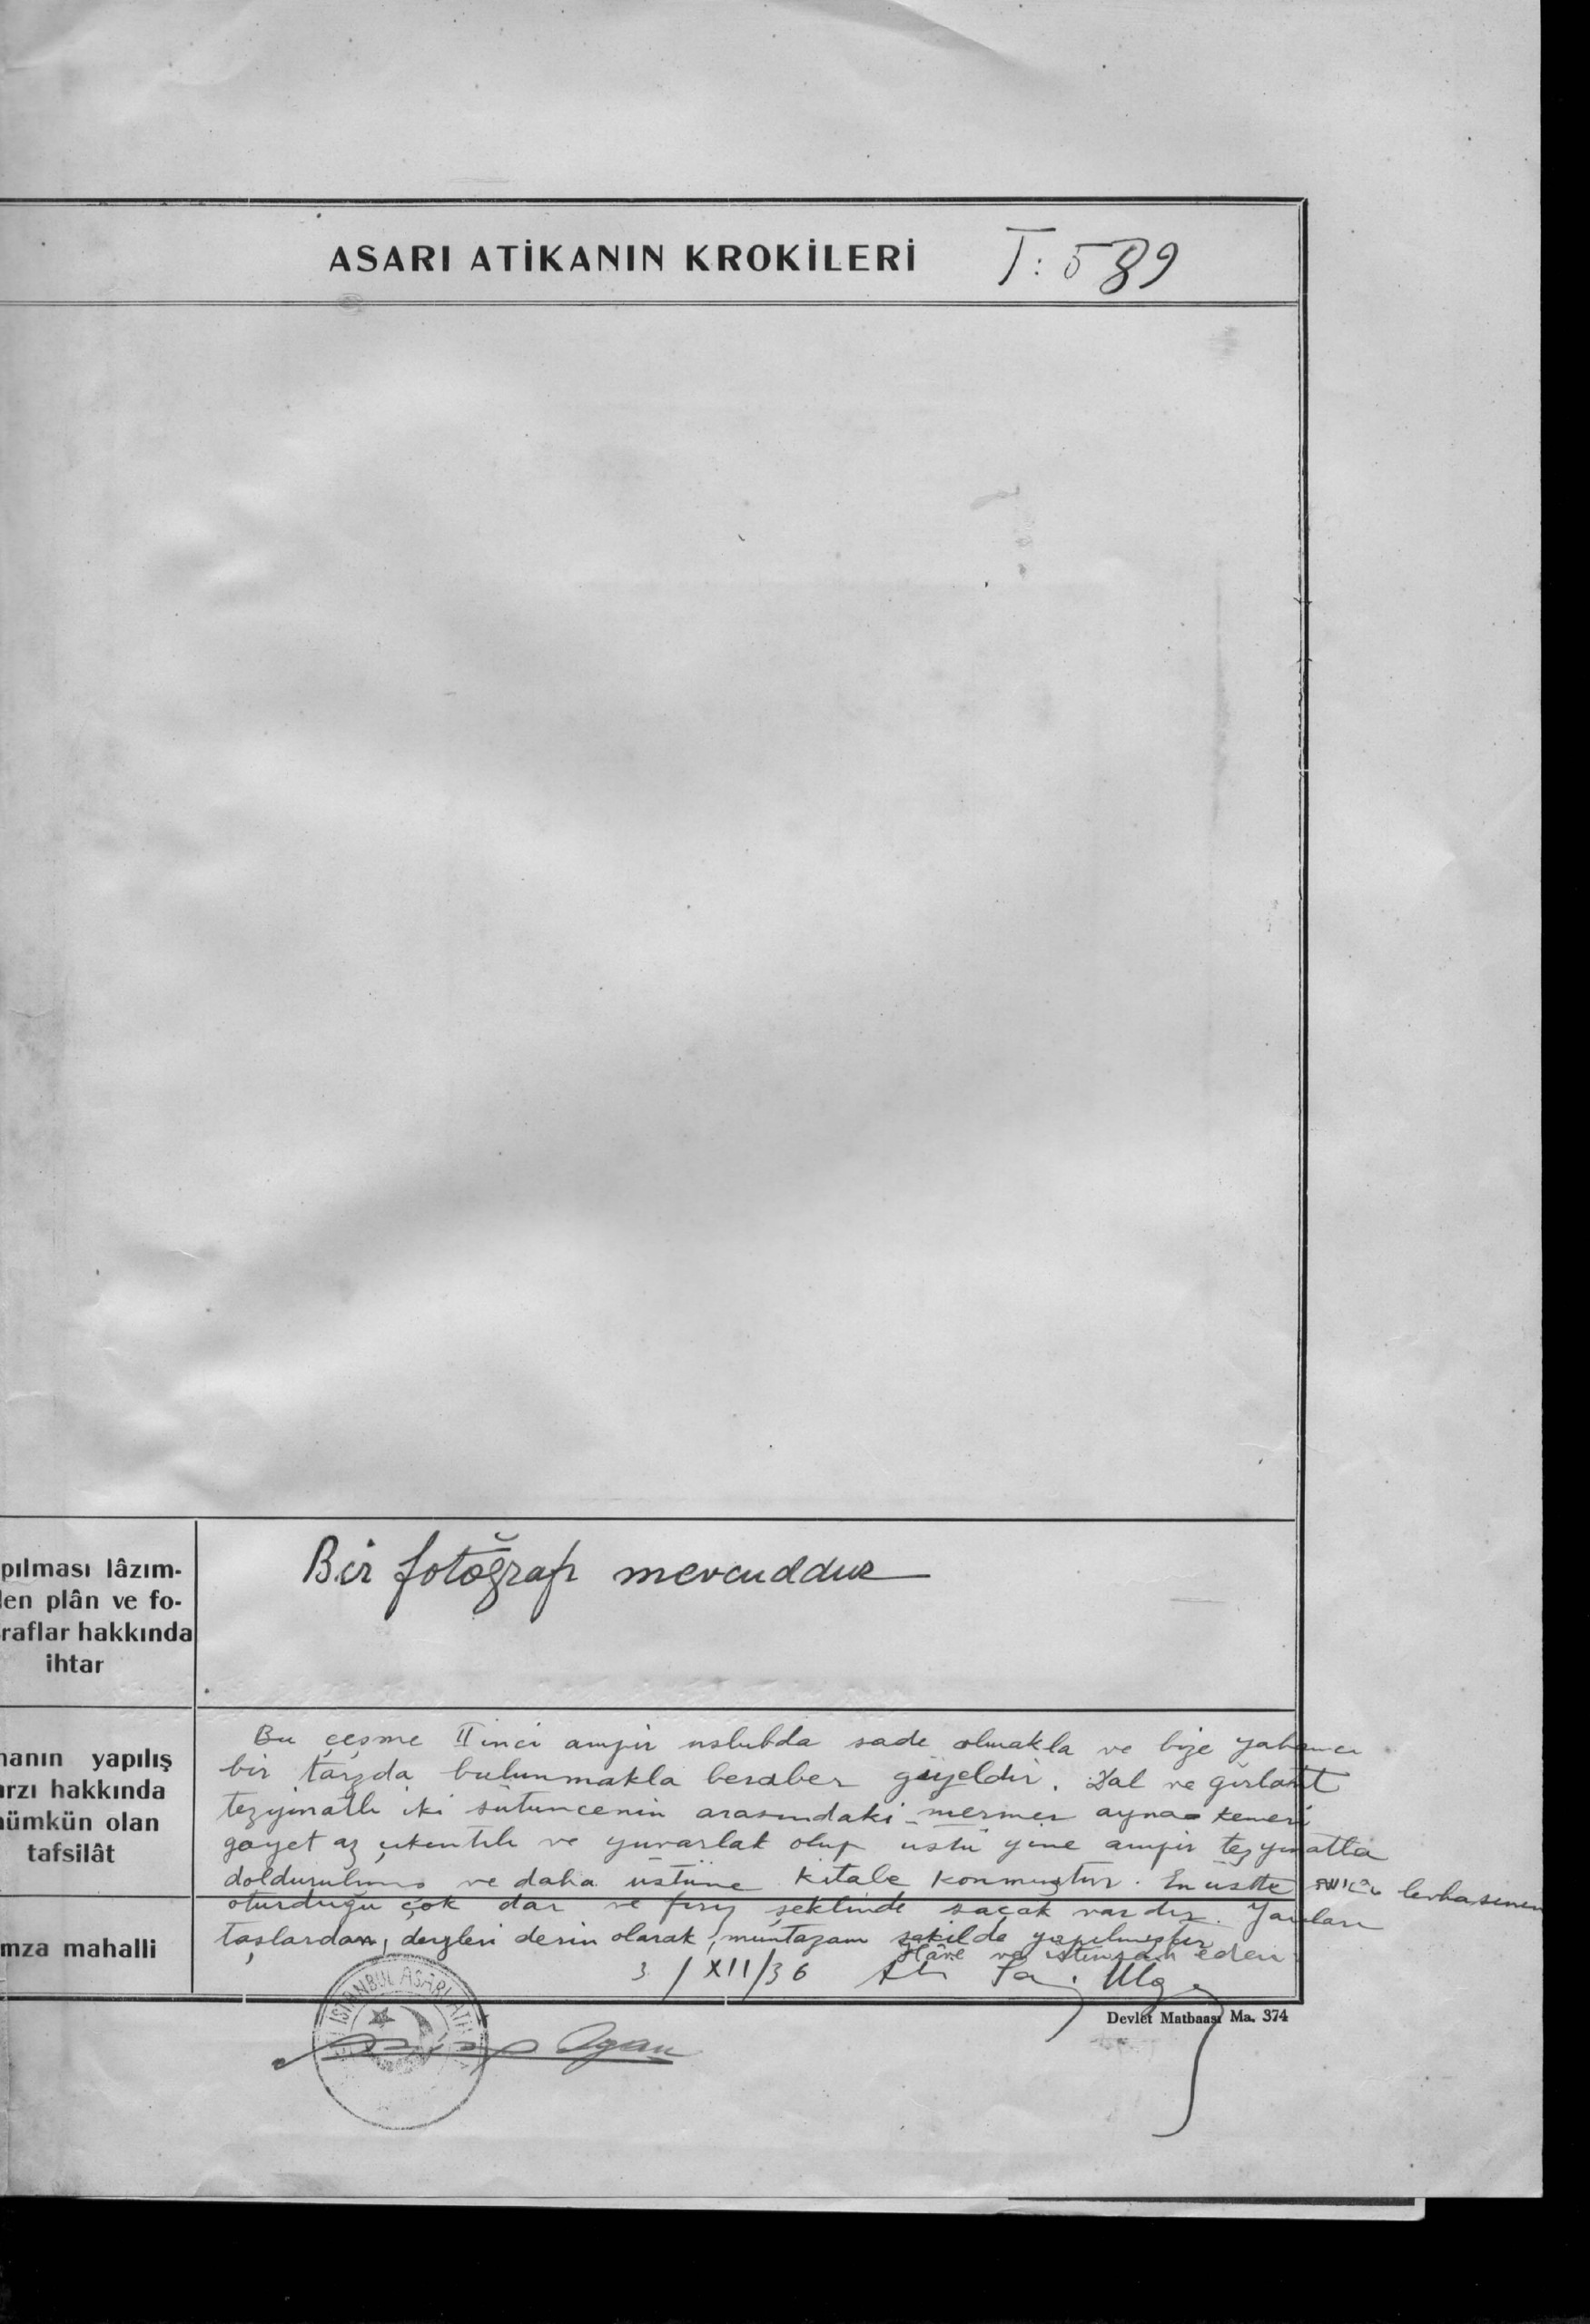 ASARI ATİKANIN KROKİLERİ T: 589
pılması lâzım-
len plân ve fo-
raflar hakkında
ihtar
Bir fotoğraf mevcuddur
nanın yapılış
arzı hakkında
nümkün olan
tafsilât
Bu çeşme II inci ampir uslubda sade olmakla ve bize yabancı
bir tarzda bulunmakla beraber güzeldir. Dal ve girlant
tezyinatlı iki sütuncenin arasındaki mermer ayna kemeri
gayet az çıkıntılı ve yuvarlak olup üstü yine ampir tezyinatla
doldurulmuş ve daha üstüne kitabe konmuştur. En üstte levhasının
oturduğu çok dar ve friz şeklinde saçak vardır. Yanları
taşlardan, derzleri derin olarak, muntazam şekilde yapılmıştır
mza mahalli
İlâve ve istinsah eden
3 / XII / 36
İSTANBUL ASARI ATİKA
Ogan
Devlet Matbaası Ma. 374